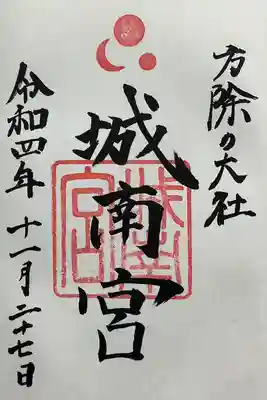 方除の大社
城南宮
令和四年 十一月 二十七日
城南宮